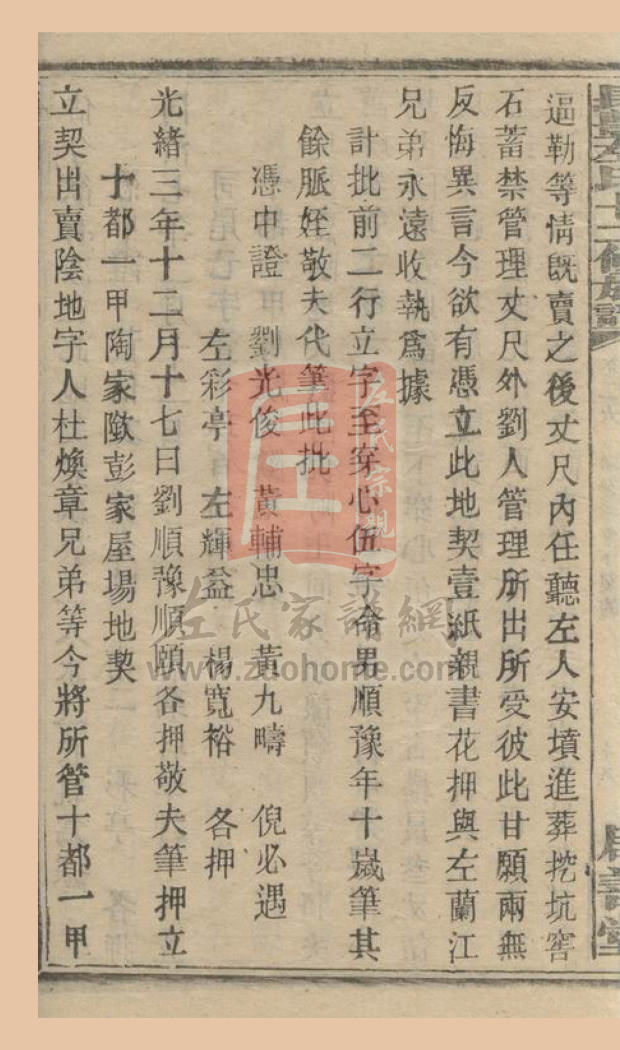 逼勒等情既賣之後丈尺內任聽左人安墳進葬挖坑窖
石蓄禁管理丈尺外劉人管理所出所受彼此甘願兩無
反悔異言今欲有憑立此地契壹紙親書花押與左蘭江
兄弟永遠收執爲據
計批前二行立字至穿心伍字命男順豫年十歲筆其
餘脈姪敬夫代筆此批
憑中證 劉光俊 黃輔忠 黃九疇 倪必遇
左彩亭 左輝益 楊寬裕 各押
光緒三年十二月十七日劉順豫順頤各押敬夫筆押立
十都一甲陶家歘彭家屋場地契
立契出賣陰地字人杜煥章兄弟等今將所管十都一甲
左氏宗親
左氏家譜網
www.zuohome.com